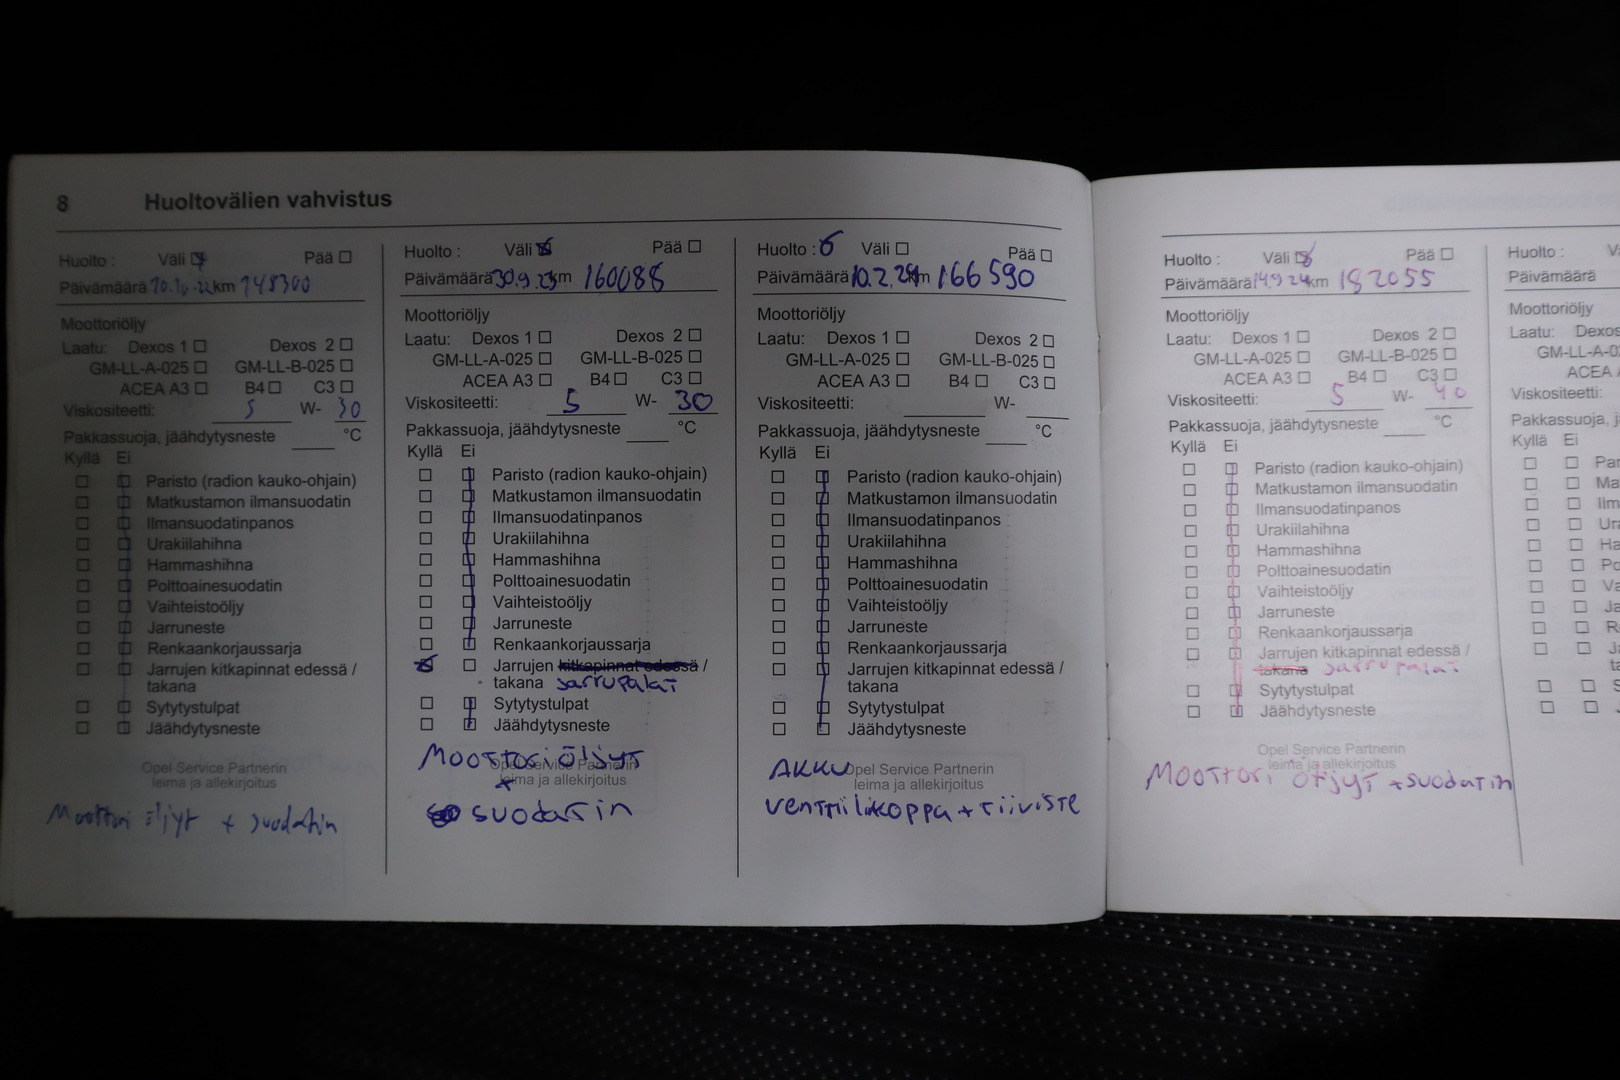 8 Huoltovälien vahvistus
Huolto : Väli Pää
Päivämäärä km 148300
Moottoriöljy
Laatu: Dexos 1 Dexos 2
GM-LL-A-025 GM-LL-B-025
ACEA A3 B4 C3
Viskositeetti: 5 W- 30
Pakkassuoja, jäähdytysneste °C
Kyllä Ei
Paristo (radion kauko-ohjain)
Matkustamon ilmansuodatin
Ilmansuodatinpanos
Urakiilahihna
Hammashihna
Polttoainesuodatin
Vaihteistoöljy
Jarruneste
Renkaankorjaussarja
Jarrujen kitkapinnat edessä /
takana
Sytytystulpat
Jäähdytysneste
Opel Service Partnerin
leima ja allekirjoitus
Moottori öljyt + suodatin
Huolto : Väli Pää
Päivämäärä 30.9.23 km 160086
Moottoriöljy
Laatu: Dexos 1 Dexos 2
GM-LL-A-025 GM-LL-B-025
ACEA A3 B4 C3
Viskositeetti: 5 W- 30
Pakkassuoja, jäähdytysneste °C
Kyllä Ei
Paristo (radion kauko-ohjain)
Matkustamon ilmansuodatin
Ilmansuodatinpanos
Urakiilahihna
Hammashihna
Polttoainesuodatin
Vaihteistoöljy
Jarruneste
Renkaankorjaussarja
Jarrujen kitkapinnat edessä /
takana Jarrupalat
Sytytystulpat
Jäähdytysneste
Moottori öljyt
Opel Service Partnerin
leima ja allekirjoitus
+
suodatin
Huolto : 6 Väli Pää
Päivämäärä 10.2.24 km 166590
Moottoriöljy
Laatu: Dexos 1 Dexos 2
GM-LL-A-025 GM-LL-B-025
ACEA A3 B4 C3
Viskositeetti: W-
Pakkassuoja, jäähdytysneste °C
Kyllä Ei
Paristo (radion kauko-ohjain)
Matkustamon ilmansuodatin
Ilmansuodatinpanos
Urakiilahihna
Hammashihna
Polttoainesuodatin
Vaihteistoöljy
Jarruneste
Renkaankorjaussarja
Jarrujen kitkapinnat edessä /
takana
Sytytystulpat
Jäähdytysneste
AKKU
Opel Service Partnerin
leima ja allekirjoitus
venttiilikoppa + tiiviste
Huolto : Väli Pää
Päivämäärä 14.9 24 km 182055
Moottoriöljy
Laatu: Dexos 1 Dexos 2
GM-LL-A-025 GM-LL-B-025
ACEA A3 B4 C3
Viskositeetti: 5 W- 40
Pakkassuoja, jäähdytysneste °C
Kyllä Ei
Paristo (radion kauko-ohjain)
Matkustamon ilmansuodatin
Ilmansuodatinpanos
Urakiilahihna
Hammashihna
Polttoainesuodatin
Vaihteistoöljy
Jarruneste
Renkaankorjaussarja
Jarrujen kitkapinnat edessä /
takana Jarrupalat
Sytytystulpat
Jäähdytysneste
Opel Service Partnerin
leima ja allekirjoitus
Moottori öljyt + suodatin
Huolto :
Päivämäärä
Moottoriöljy
Laatu: Dexos
GM-LL-A-0
ACEA
Viskositeetti:
Pakkassuoja, j
Kyllä Ei